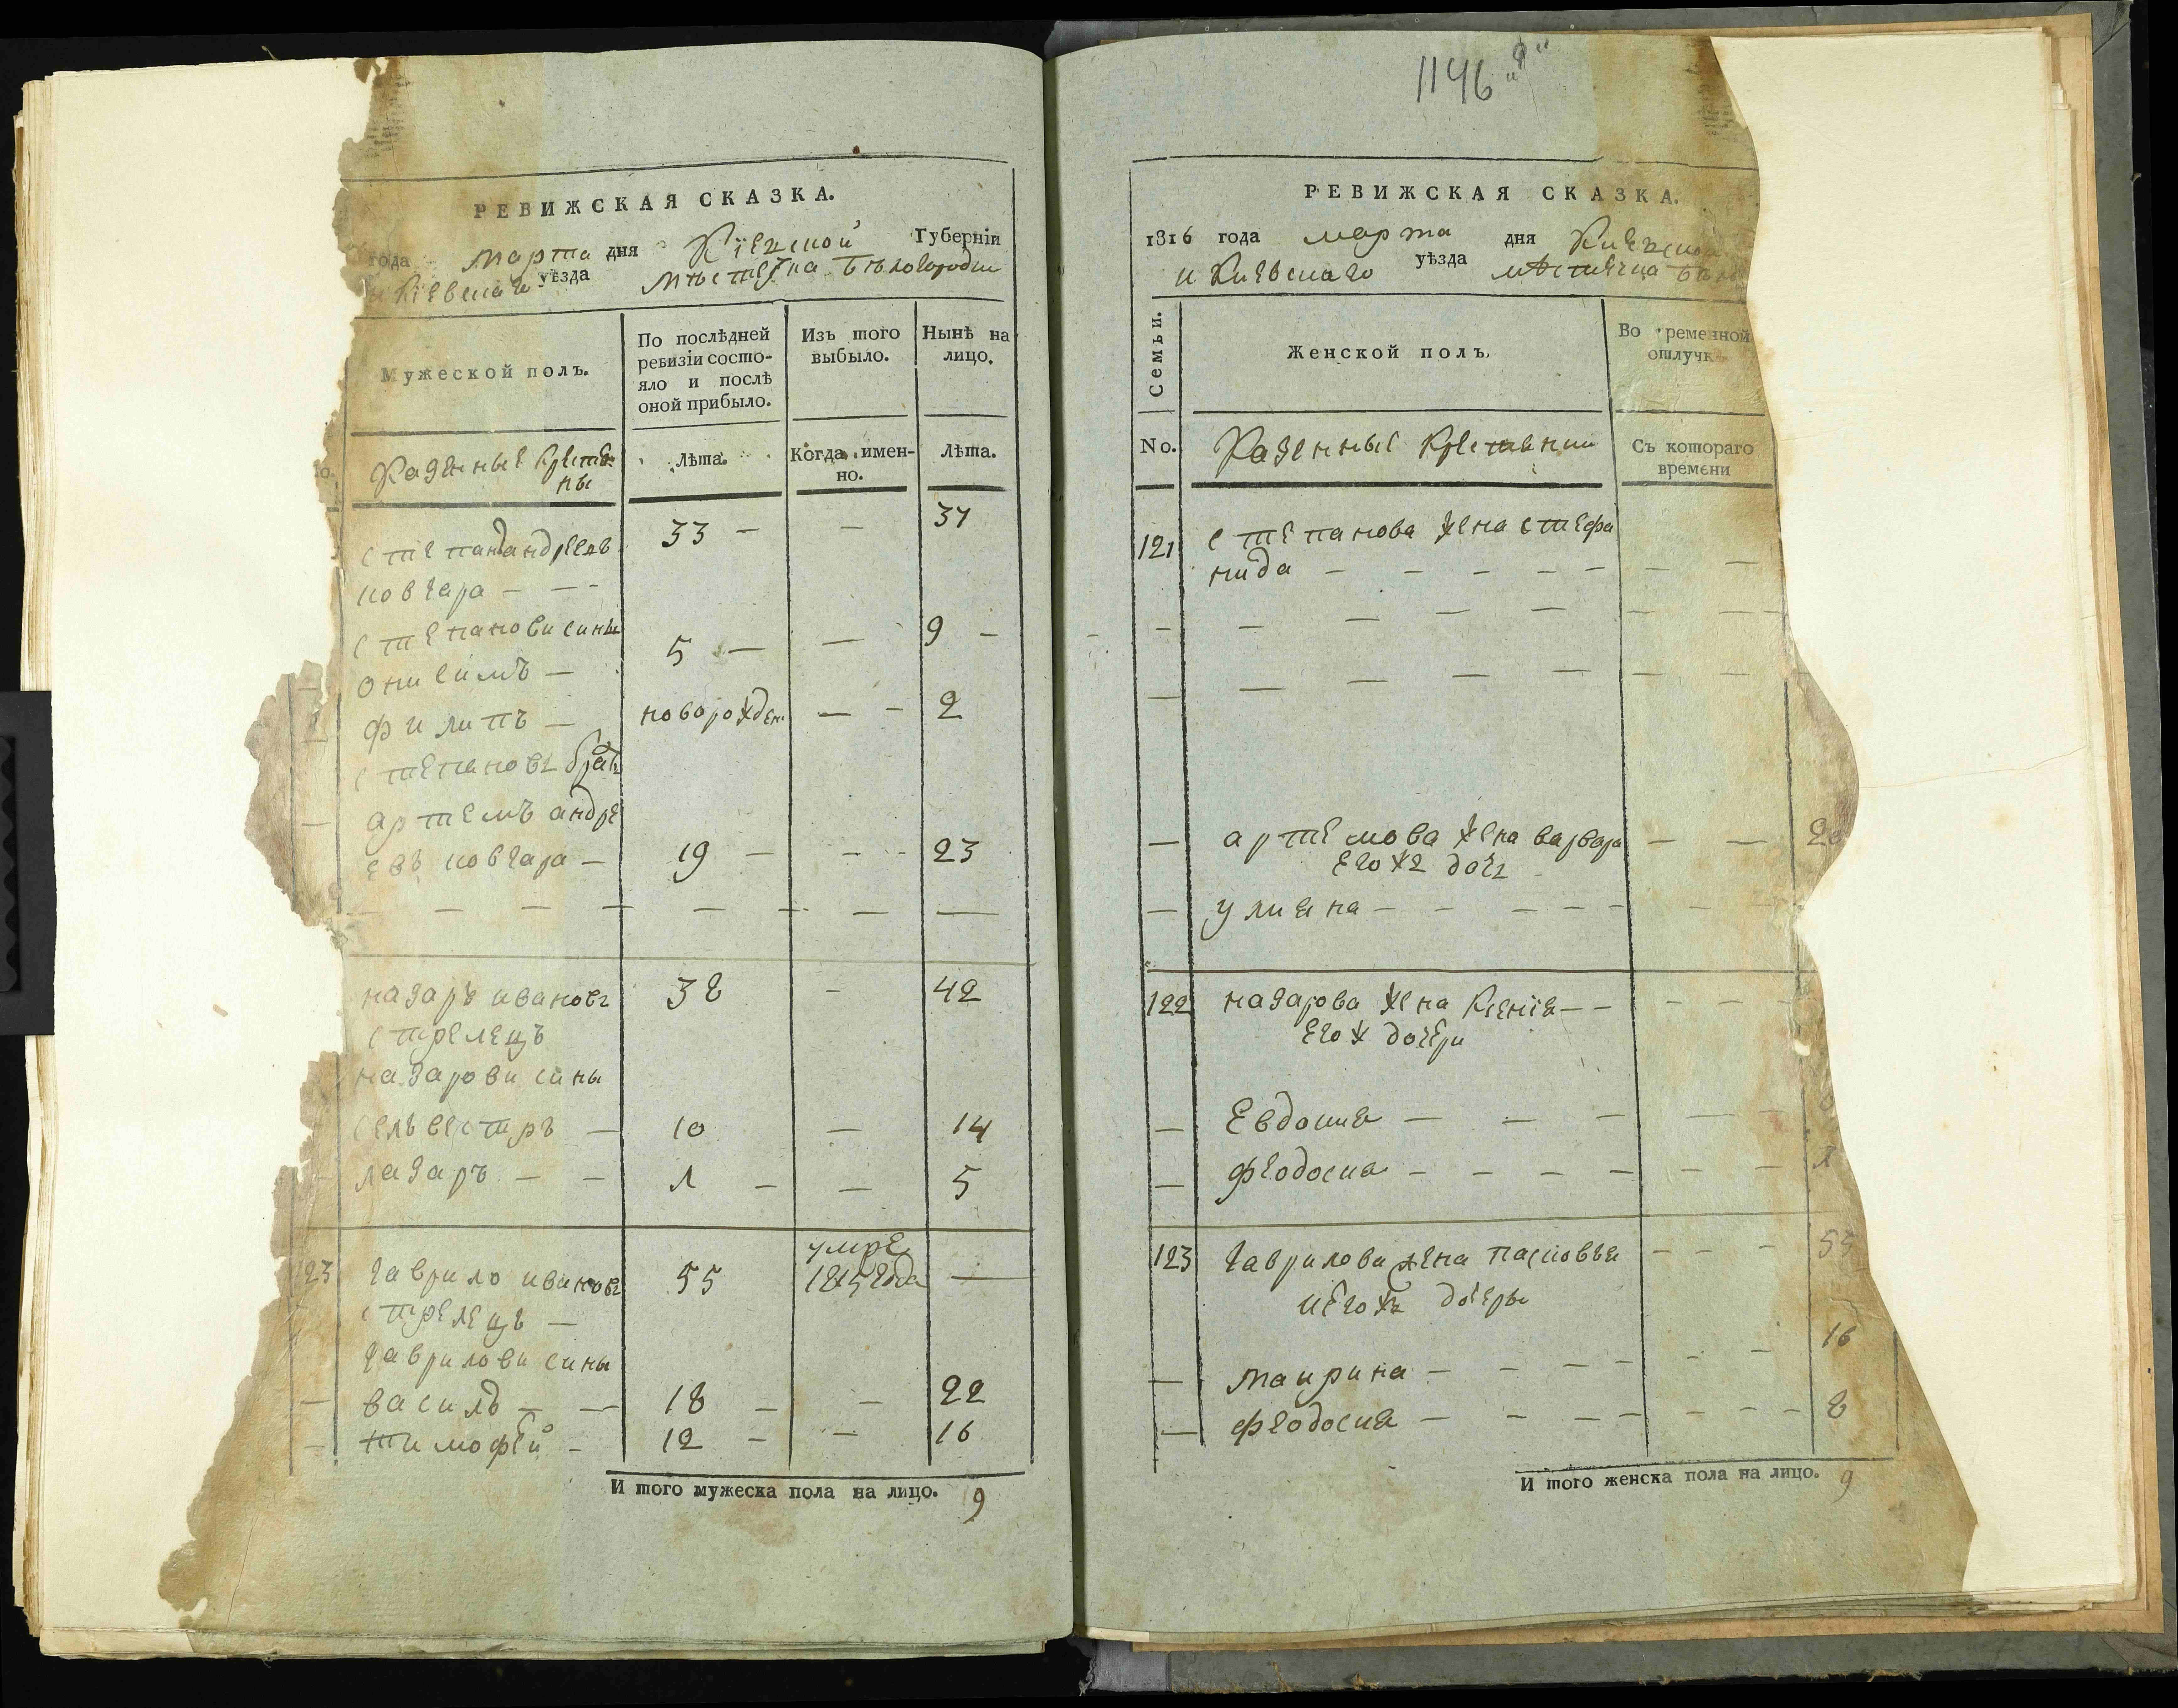 1146 "9"
РЕВИЖСКАЯ СКАЗКА.
года марта дня Кіевской Губерніи
и Кіевскаго уѣзда мѣстечка Бѣлогородки
Мужеской полъ.
По послѣдней ревизіи состояло и послѣ оной прибыло.
Изъ того выбыло.
Нынѣ на лицо.
No. Казенные крестяны
Лѣта.
Когда имен-
но.
Лѣта.
степанъ андреевъ 33 - - 37
ковчара - - -
степанови сины
онисимъ - 5 - - 9 -
филипъ - новорожден. - - 2
степановъ братъ
артемъ андре
евъ ковчара - 19 - - - 23
- - - - - - - -
назаръ ивановъ 38 - 42
стрелецъ
назарови сины
селвестръ - 10 - 14
лазаръ - - 1 - - 5
23 гаврило ивановъ 55 умре
1815 года -
стрелецъ -
гаврилови сины
василь - - 18 - - 22
тимофей - 12 - - 16
И того мужеска пола на лицо. 9
РЕВИЖСКАЯ СКАЗКА.
1816 года марта дня Киевской
и Киевскаго уѣзда мѣстечка Бѣло
Семьи.
Женской полъ.
Во временной
отлучкѣ
No. Казенные крестянки
Съ котораго
времени
121 степанова жена стефа
нида - - - - - - -
- - - - - -
- - - - - -
- артемова жена варвара - - 20
его жъ дочъ
- улияна - - - - - - -
122 назарова жена Ксенія - - - - -
его ж дочери
- Евдокия - - - - -
- феодосия - - - - - -
123 гаврилова жена пасковья - - - 55
и его жъ дочеры
- маирина - - - - - - 16
- феодосия - - - - - - - 8
И того женска пола на лицо. 9